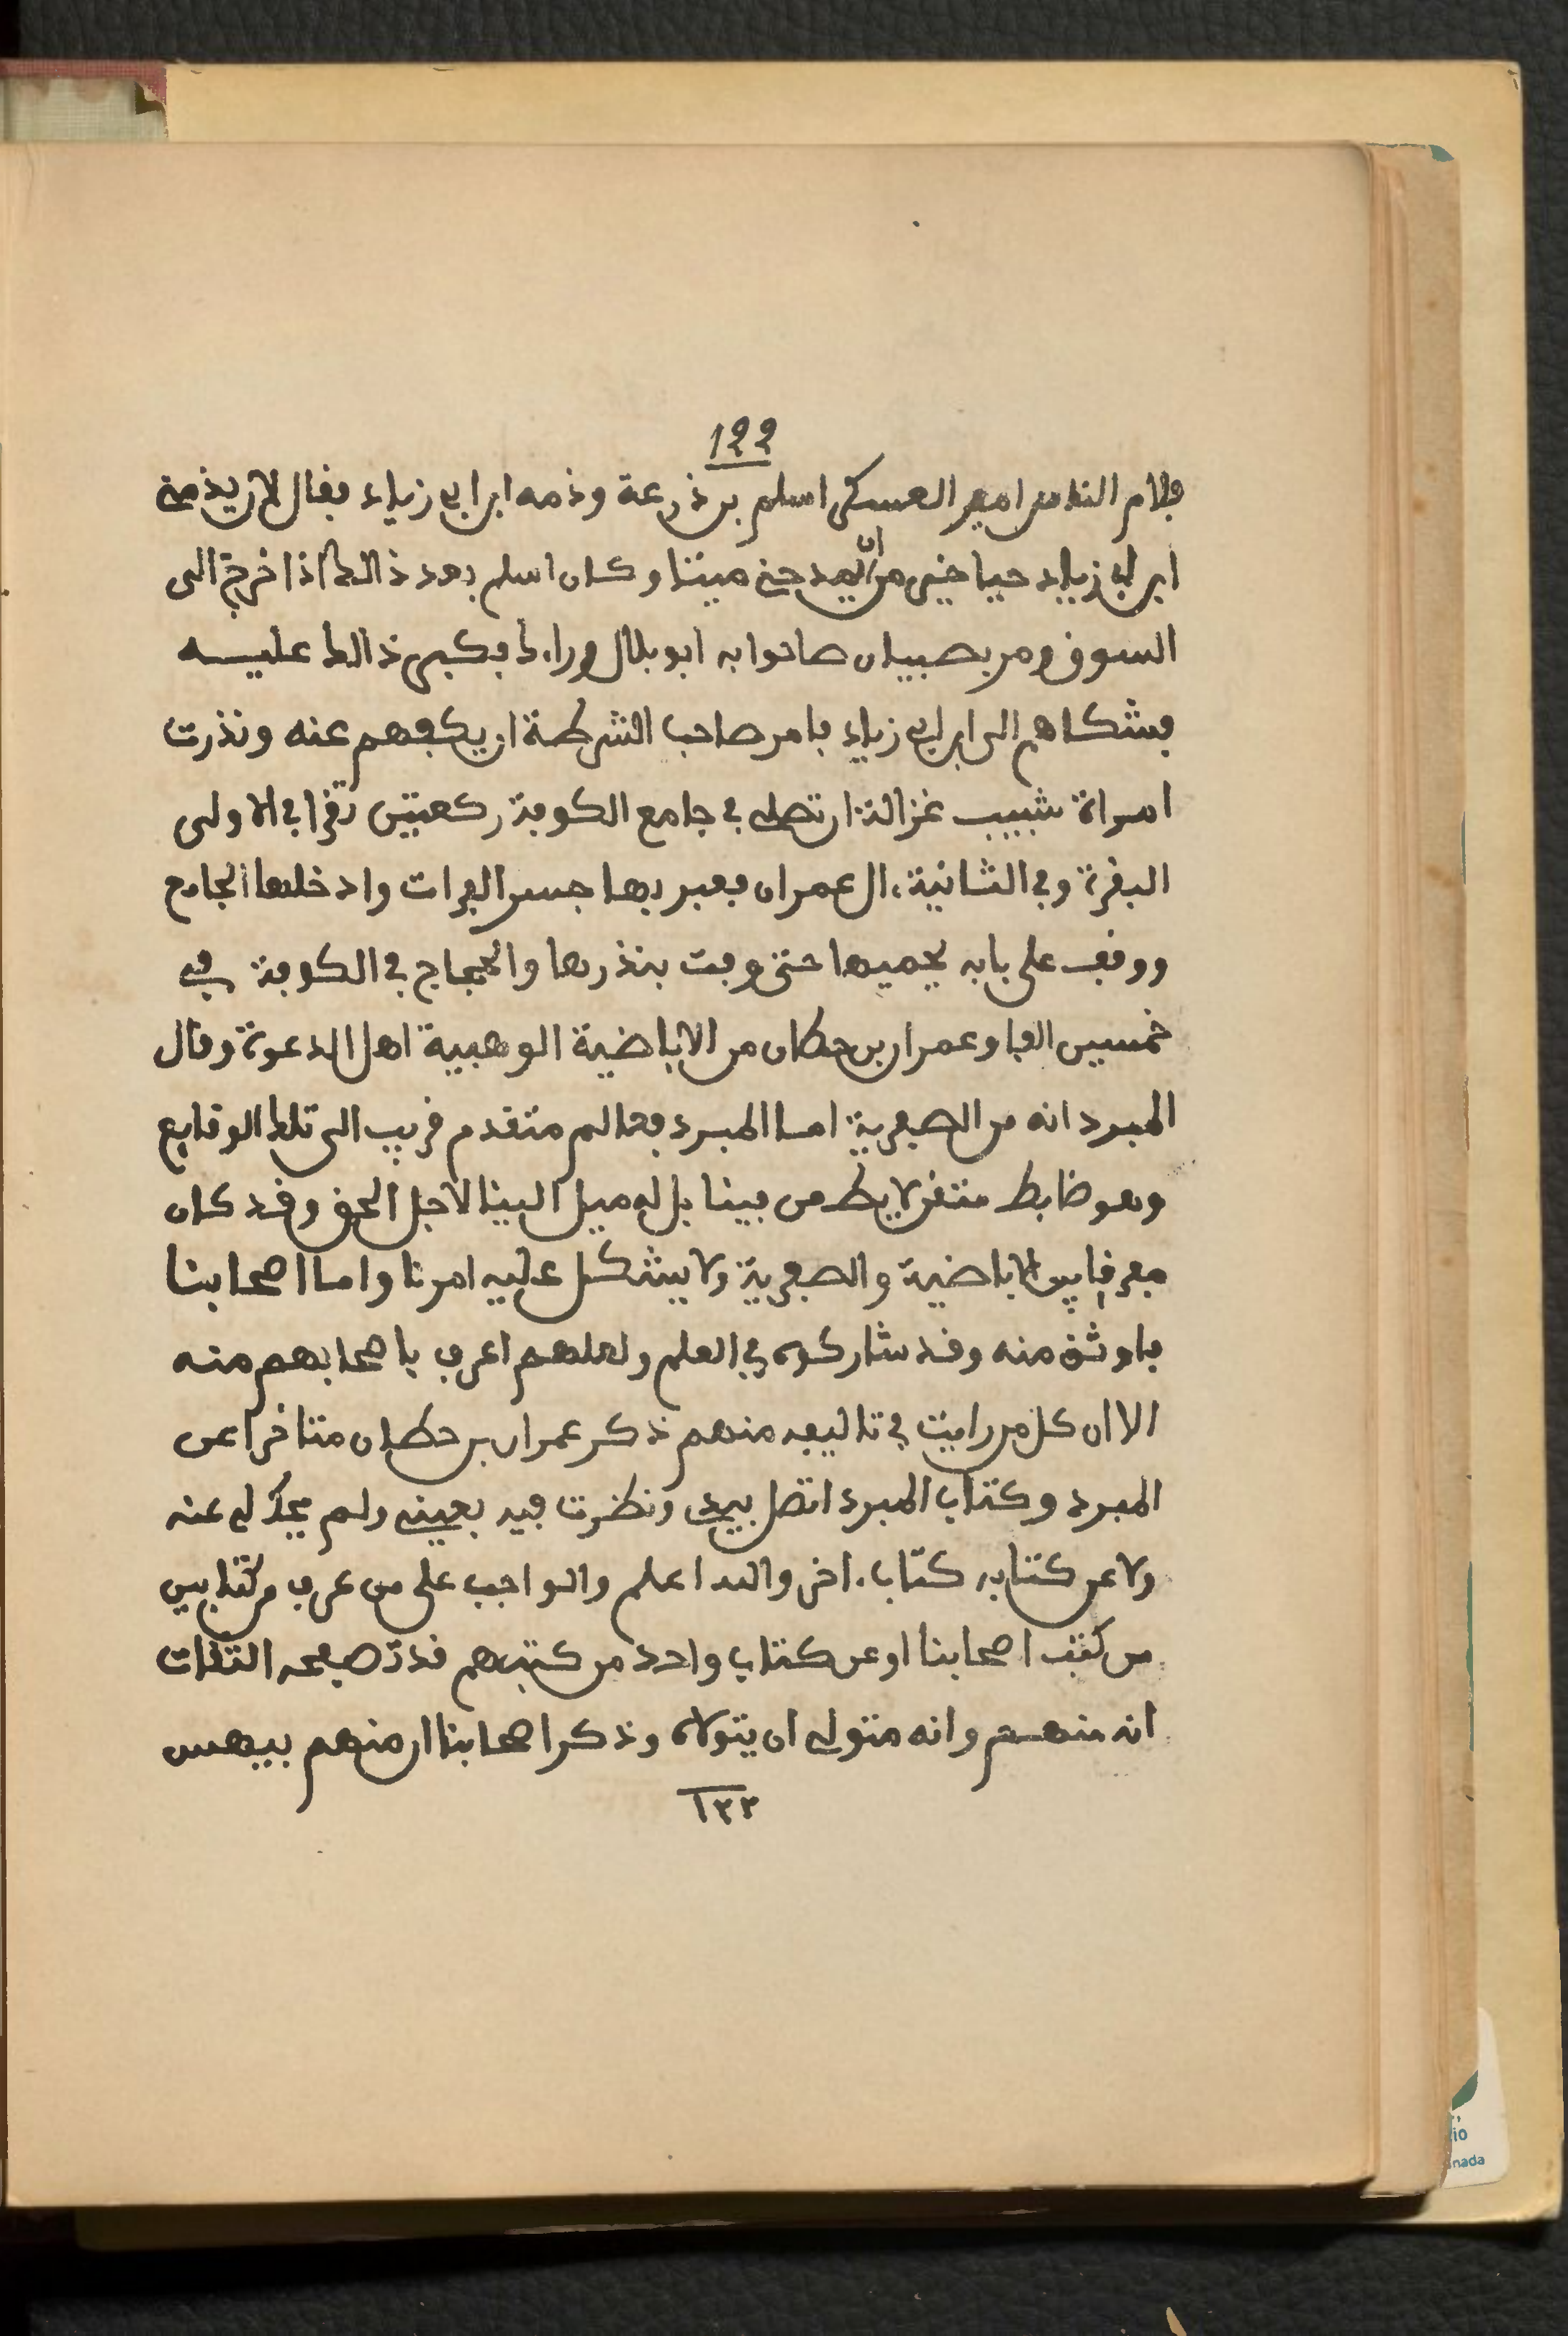 ١٤٤
فلام الناس امير العسكر اسلم بن ذرعة وذمه ابن ابي زياد فقال لان يذمني
ابن ابي زياد حيا خير من ان يمدحني ميتا وكان اسلم بعد ذالك اذا خرج الى
السوق ومر بصبيان صاحوا به ابو بلال وراءك فكبر ذالك عليه
فشكاهم الى ابن ابي زياد فامر صاحب الشرطة ان يكفهم عنه ونذرت
امراة شبيب غزالة ان تصلي في جامع الكوفة ركعتين تقرا في الاولى
البقرة وفي الثانية ءال عمران فعبر بها جسر الفرات وادخلها الجامع
ووقف على بابه يحميها حتى وفت بنذرها والحجاج في الكوفة في
خمسين الفا وعمران بن حطان من الاباضية الوهبية اهل الدعوة وقال
المبرد انه من الصفرية اما المبرد فعالم متقدم قريب الى تلك الوقايع
وهو ضابط متقن لا يطعن فينا بل له ميل الينا لاجل الحق وقد كان
معرفا بين الاباضية والصفرية ولا يشكل عليه امرنا واما اصحابنا
فاوثق منه وقد شاركوه في العلم ولعلهم اعرف باصحابهم منه
الا ان كل من رايت في تاليفه منهم ذكر عمران بن حطان متاخرا عن
المبرد وكتاب المبرد اتصل بيدي ونظرت فيه بعيني ولم يحك لي عنه
ولا عن كتابه كتاب ءاخر والله اعلم والواجب على من عرف من كتابين
من كتب اصحابنا او عن كتاب واحد من كتبهم قد تصفحه الثقات
انه منهم وانه متولى ان يتولاه وذكر اصحابنا ان منهم بيهس
١٣٣